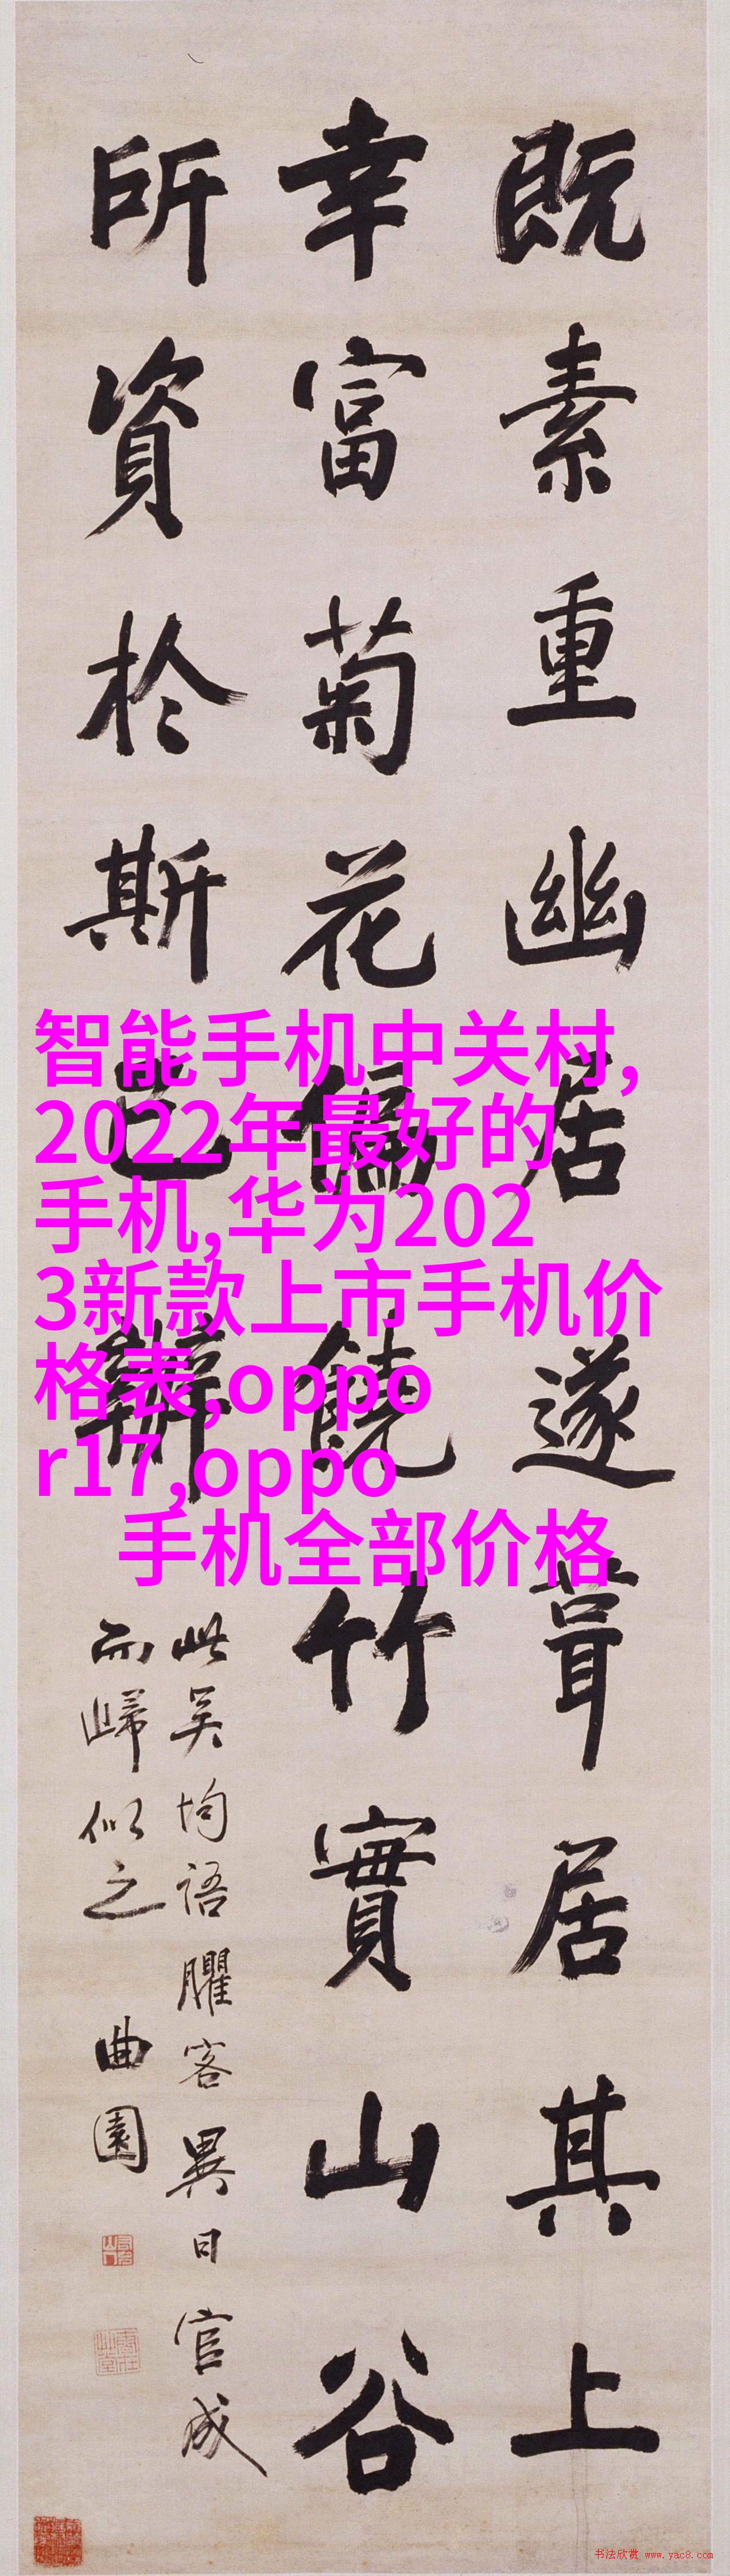 既素重幽居遂葺居其上
幸富菊花偏饒竹實山谷
所資於斯已辦
此吴均語臞客異日官成
而歸似之
曲園
智能手机中关村,
2022年最好的
手机,华为202
3新款上市手机价
格表,oppo
r17,oppo
手机全部价格
书法欣赏 www.yac8.com